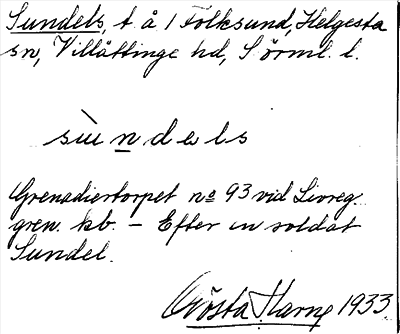 Sundels, t. å 1 Folksund, Helgesta
sn, Villåttinge hd, Sörml. l.
sùndels
Grenadiertorpet no 93 vid Livreg.
gren. kb. – Efter en soldat
Sundel.
Gösta Harng 1933